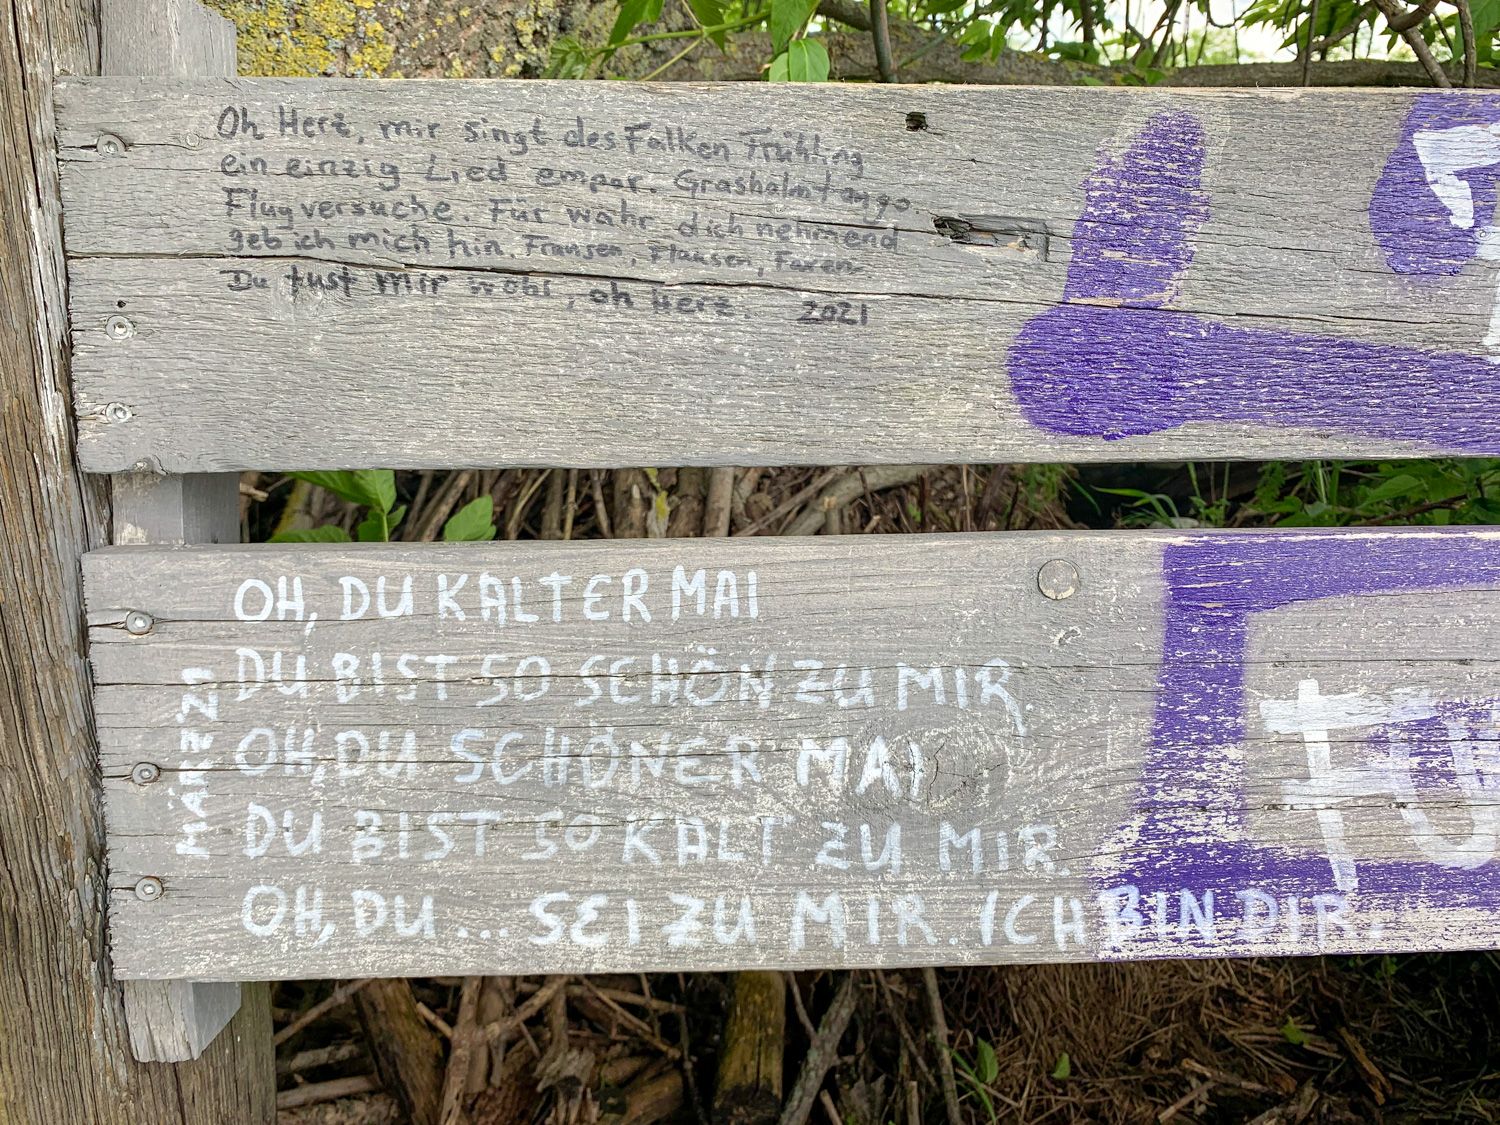 Oh Herz, mir singt des Falken Frühling
ein einzig Lied empor. Grashalmtango.
Flugversuche. Für wahr dich nehmend
geb ich mich hin. Fransen, Flausen, Faxen
Du tust mir wohl, oh Herz. 2021
OH, DU KALTER MAI
DU BIST SO SCHÖN ZU MIR.
OH, DU SCHÖNER MAI
DU BIST SO KALT ZU MIR.
OH, DU.. SEI ZU MIR. ICH BIN DIR.
MÄRZ 21